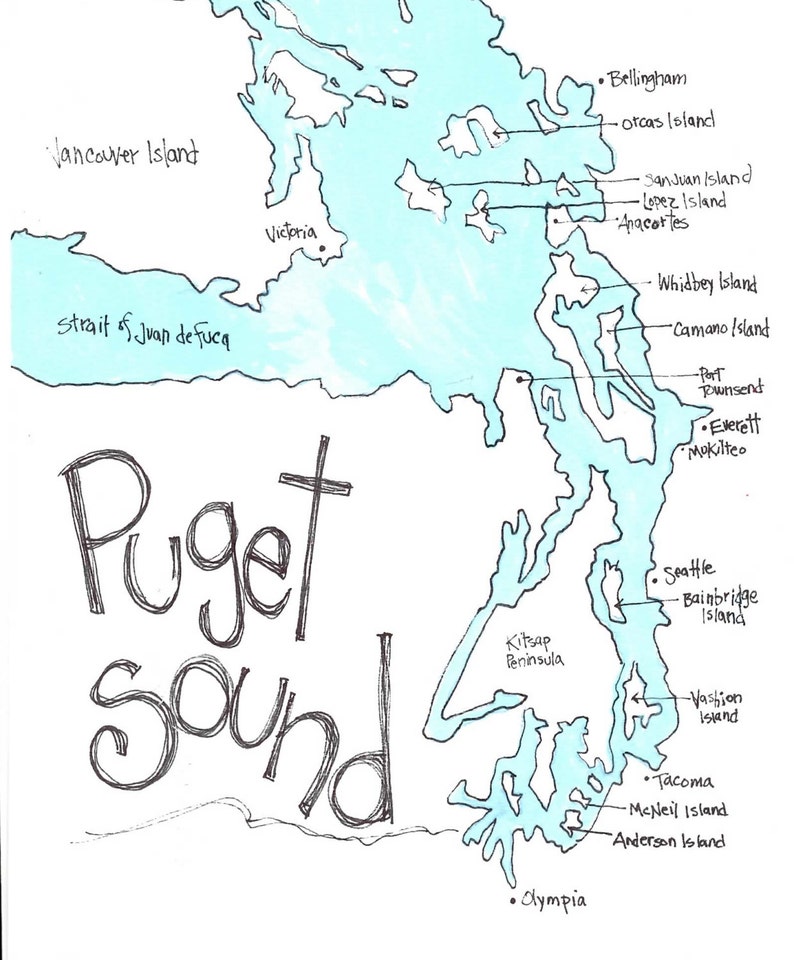 Bellingham
Orcas Island
Vancouver Island
San Juan Island
Lopez Island
Anacortes
Victoria
Whidbey Island
Strait of Juan de Fuca
Camano Island
Port
Townsend
Everett
Mukilteo
Puget
Sound
Seattle
Bainbridge
Island
Kitsap
Peninsula
Vashion
Island
Tacoma
McNeil Island
Anderson Island
Olympia